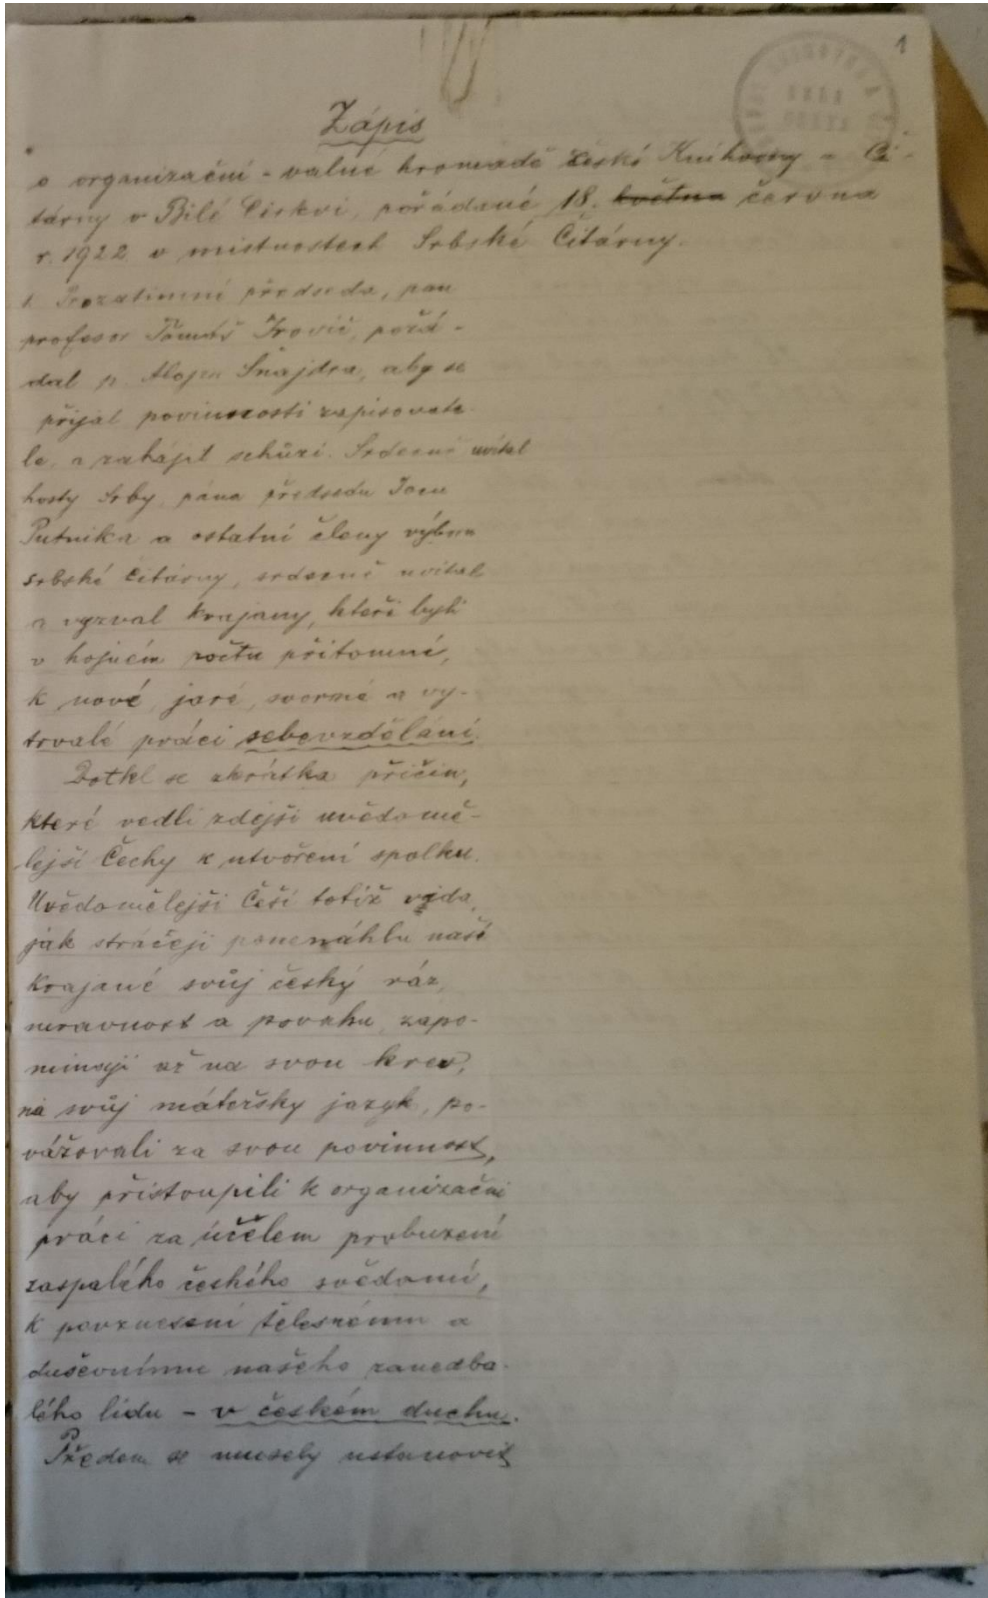 1
Zápis
o organizační - valné hromadě České Knihovny - Či-
tárny v Bílé Cirkvi, pořádané 18. května června
r. 1922 v místnostech Srbské Čitárny.
1. Prozatimní předseda, pan
profesor Tomáš Irovič, požá-
dal p. Alojsa Šnajdra, aby se
přijal povinnosti zapisovate-
le, a zahájil schůzi. Srdečně uvítal
hosty Srby, pána předsedu Jocu
Putnika a ostatní členy výboru
srbské čitárny, srdečně uvítal
a vyzval krajany, kteři byli
v hojném počtu přítomní,
k nové, jaré, svorné a vy-
trvalé práci sebevzdělání.
Dotkl se zkrátka příčin,
které vedli zdejší uvědomě-
lejší Čechy k utvoření spolku.
Uvědomělejši Češi totiž vida,
jak stráčeji ponenáhlu naší
krajané svůj český ráz,
mravnost a povahu, zapo-
minaji až na svou krev,
na svůj mátořsky jazyk, po-
vážovali za svou povinnost,
aby přistoupili k organizační
práci za účelem probuzení
zaspalého českého svědomí,
k povznesení tělesnému a
duševnímu našeho zanedba-
lého lidu - v českém duchu.
Předem se musely ustanovit